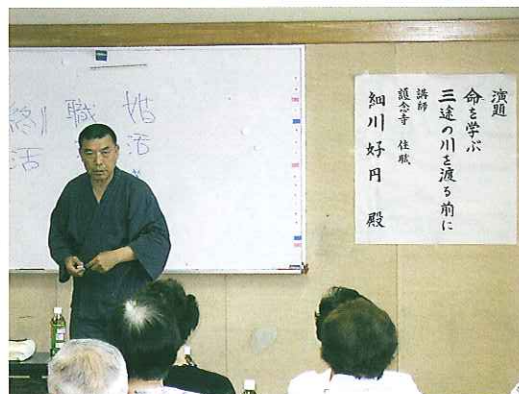 演題
命を学ぶ
三途の川を渡る前に
講師
護念寺 住職
細川好円 殿
婚活
職
終活